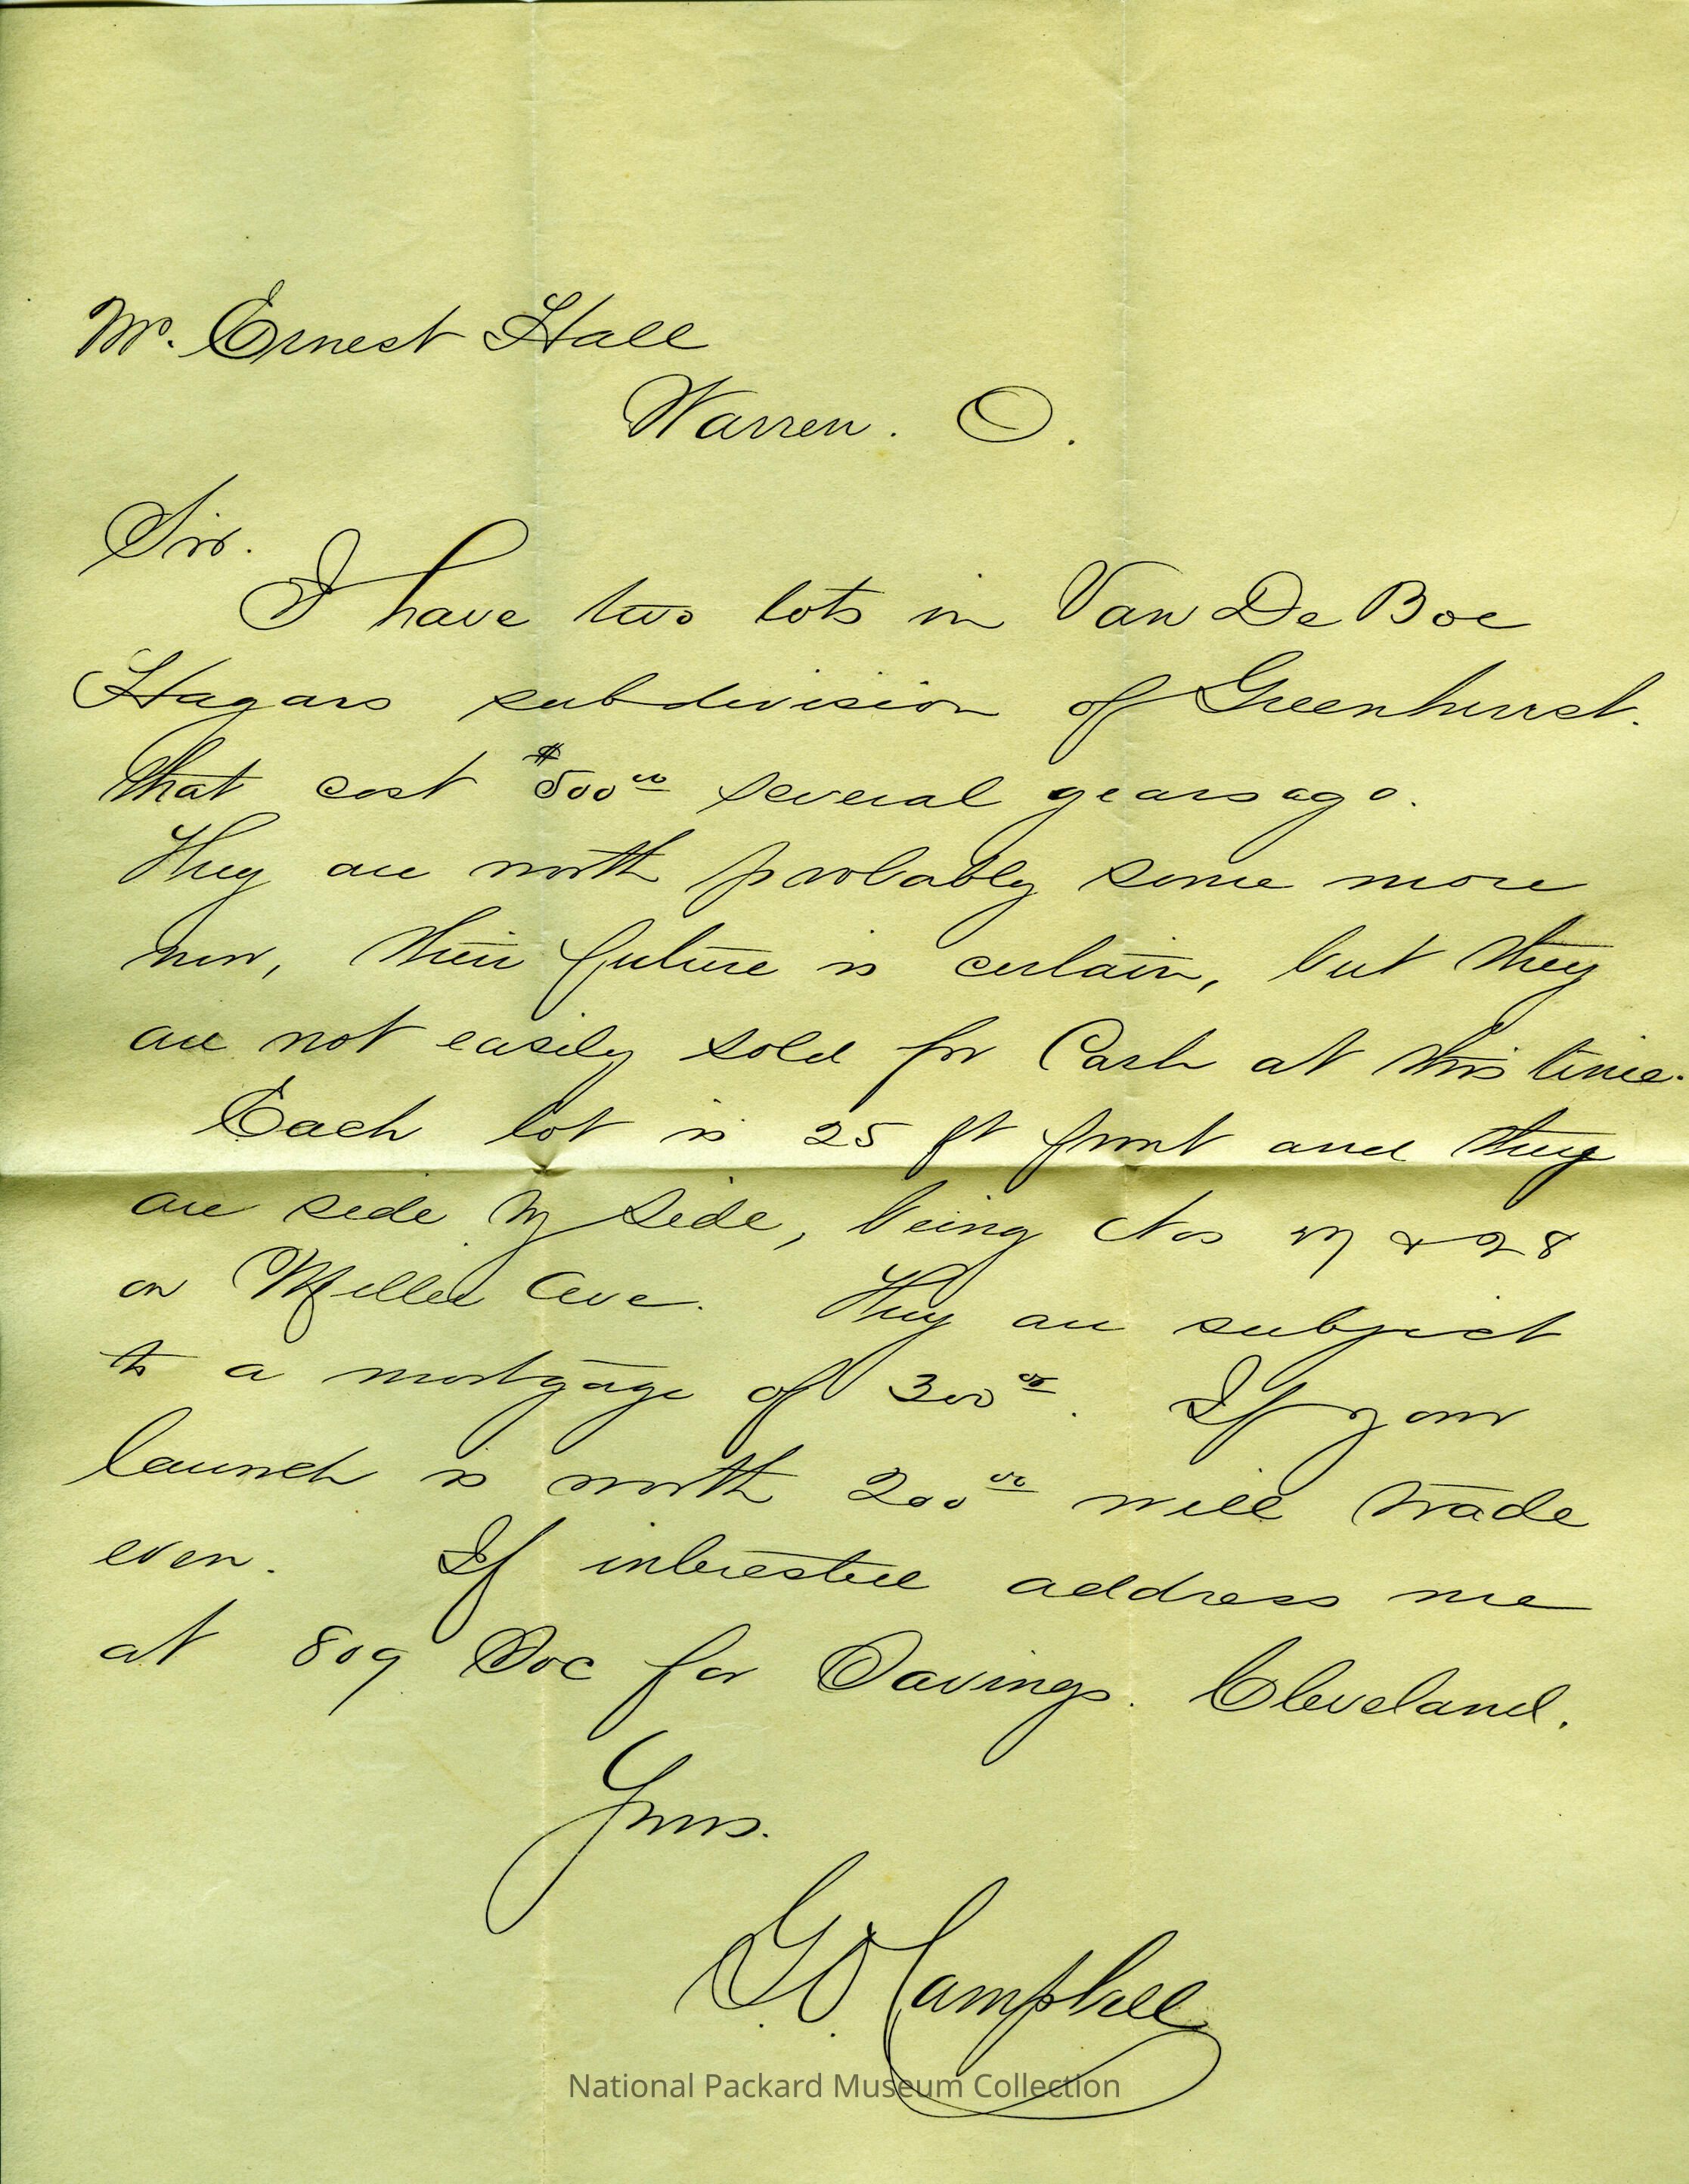 Mr. Ernest Hall
Warren. O.
Sir.
I have two lots in Van De Boe
Hagars subdivision of Greenhurst.
that cost $500 00 several years ago.
They are worth probably some more
now, their future is certain, but they
are not easily sold for Cash at this time.
Each lot is 25 ft front and they
are side by side, being Nos 27 & 28
on Miller Ave. They are subject
to a mortgage of 300 00. If your
launch is worth 200 00 will trade
even. If interested address me
at 809 Soc for Savings. Cleveland.
Yours.
Campbell
National Packard Museum Collection